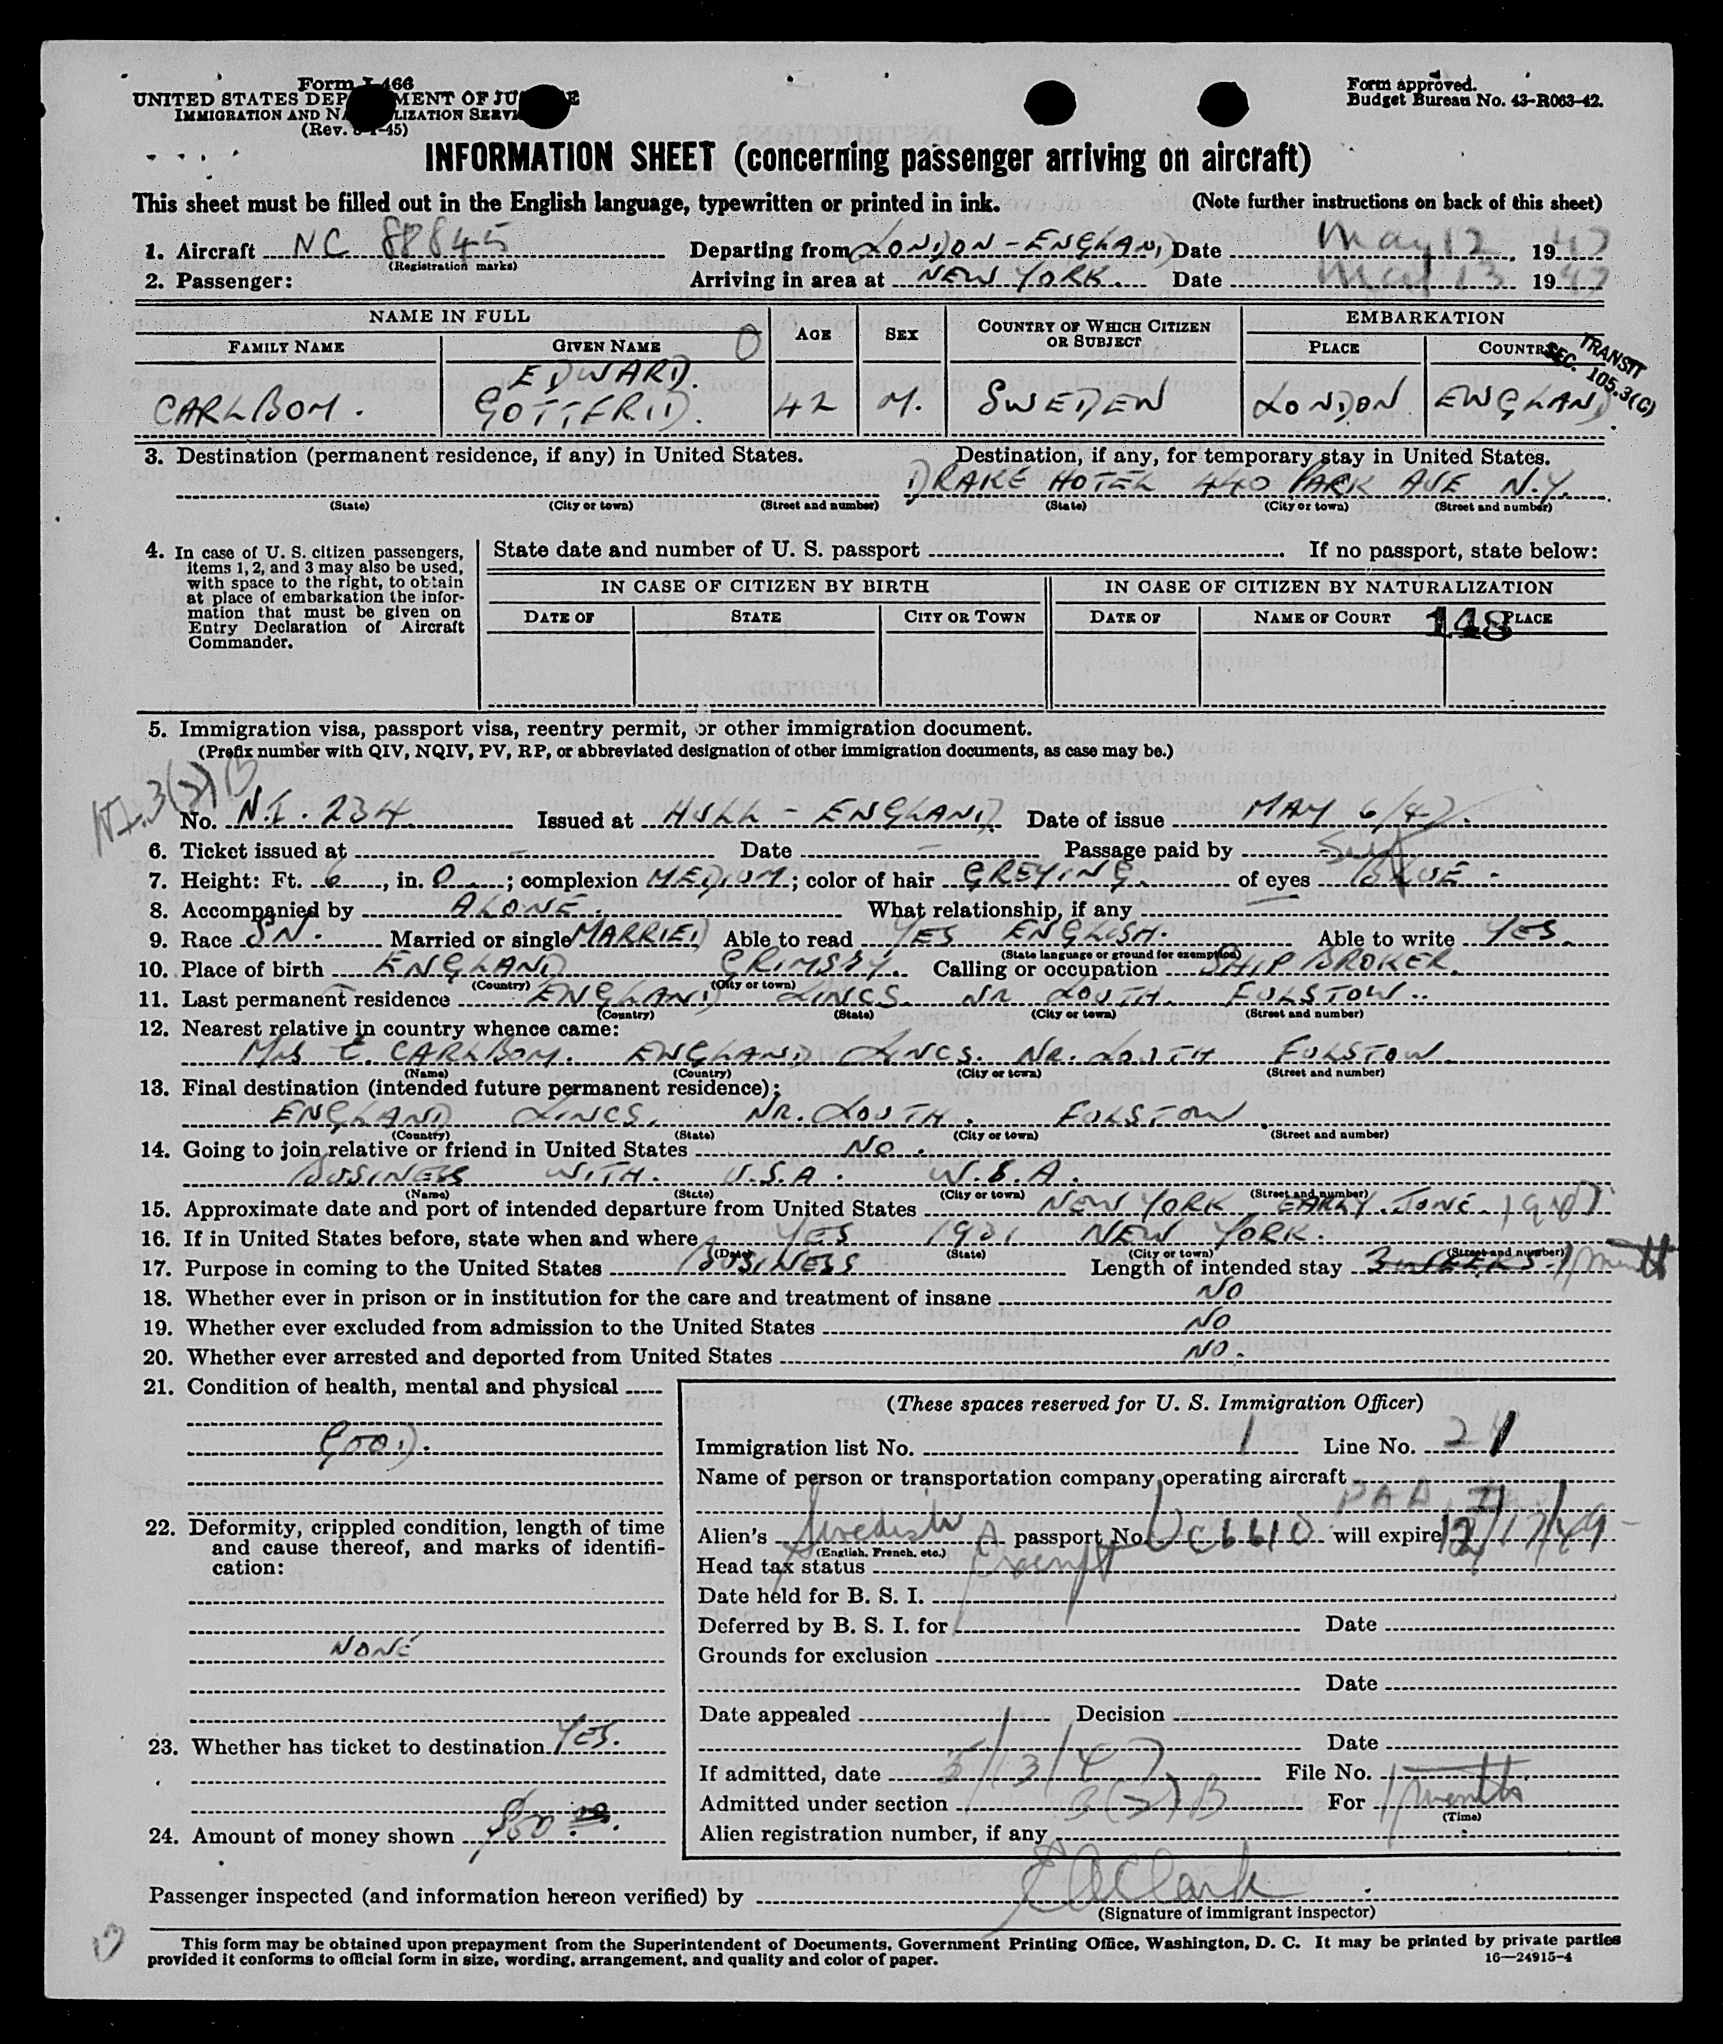 Form I-466
UNITED STATES DEPARTMENT OF JUSTICE
IMMIGRATION AND NATURALIZATION SERVICE
(Rev. 8-1-45)
Form approved.
Budget Bureau No. 43-R063-42.
INFORMATION SHEET (concerning passenger arriving on aircraft)
This sheet must be filled out in the English language, typewritten or printed in ink. (Note further instructions on back of this sheet)
1. Aircraft NC 88845 Departing from LONDON - ENGLAND Date May 12 1947
(Registration marks)
2. Passenger: Arriving in area at NEW YORK. Date May 13 1947
NAME IN FULL AGE SEX COUNTRY OF WHICH CITIZEN OR SUBJECT EMBARKATION
FAMILY NAME GIVEN NAME O PLACE COUNTRY
TRANSIT
SEC. 105.3(C)
EDWARD.
CARLBOM. GOTTFRID. 42 M. SWEDEN LONDON ENGLAND.
3. Destination (permanent residence, if any) in United States. Destination, if any, for temporary stay in United States.
DRAKE HOTEL 440 PARK AVE N.Y.
(State) (City or town) (Street and number) (State) (City or town) (Street and number)
4. In case of U. S. citizen passengers,
items 1, 2, and 3 may also be used,
with space to the right, to obtain
at place of embarkation the infor-
mation that must be given on
Entry Declaration of Aircraft
Commander.
State date and number of U. S. passport If no passport, state below:
IN CASE OF CITIZEN BY BIRTH IN CASE OF CITIZEN BY NATURALIZATION
DATE OF STATE CITY OR TOWN DATE OF NAME OF COURT PLACE
148
5. Immigration visa, passport visa, reentry permit, or other immigration document.
(Prefix number with QIV, NQIV, PV, RP, or abbreviated designation of other immigration documents, as case may be.)
NI. 3(2) B
No. N.I. 234 Issued at HULL - ENGLAND Date of issue MAY 6/47.
6. Ticket issued at - Date - Passage paid by Self
7. Height: Ft. 6, in. 0; complexion MEDIUM; color of hair GREYING. of eyes BLUE.
8. Accompanied by ALONE. What relationship, if any
9. Race SN. Married or single MARRIED Able to read YES ENGLISH. Able to write YES.
(State language or ground for exemption)
10. Place of birth ENGLAND GRIMSBY. Calling or occupation SHIP BROKER.
(Country) (City or town)
11. Last permanent residence ENGLAND LINCS. NR LOUTH. FULSTOW.
(Country) (State) (City or town) (Street and number)
12. Nearest relative in country whence came:
Mrs E. CARLBOM. ENGLAND LINCS. NR. LOUTH FULSTOW.
(Name) (Country) (City or town) (Street and number)
13. Final destination (intended future permanent residence):
ENGLAND LINCS. NR. LOUTH. FULSTOW.
(Country) (State) (City or town) (Street and number)
14. Going to join relative or friend in United States NO.
BUSINESS WITH. U.S.A. W.S.A.
(Name) (State) (City or town) (Street and number)
15. Approximate date and port of intended departure from United States NEW YORK EARLY. JUNE. 1947
16. If in United States before, state when and where YES 1931 NEW YORK.
(Date) (State) (City or town) (Street and number)
17. Purpose in coming to the United States BUSINESS Length of intended stay 3 WEEKS. 1 month
18. Whether ever in prison or in institution for the care and treatment of insane NO
19. Whether ever excluded from admission to the United States NO
20. Whether ever arrested and deported from United States NO.
21. Condition of health, mental and physical
GOOD.
22. Deformity, crippled condition, length of time
and cause thereof, and marks of identifi-
cation:
NONE
23. Whether has ticket to destination YES.
24. Amount of money shown $50.00.
(These spaces reserved for U. S. Immigration Officer)
Immigration list No. 1 Line No. 21
Name of person or transportation company operating aircraft
PAA
Alien's Swedish passport No. UC6610 will expire 12/17/49
(English, French, etc.)
Head tax status Exempt
Date held for B. S. I.
Deferred by B. S. I. for Date
Grounds for exclusion
Date
Date appealed Decision
Date
If admitted, date 5/13/47 File No.
Admitted under section 3(2)B For 1 month
(Time)
Alien registration number, if any
Passenger inspected (and information hereon verified) by E A Clark
(Signature of immigrant inspector)
This form may be obtained upon prepayment from the Superintendent of Documents, Government Printing Office, Washington, D. C. It may be printed by private parties
provided it conforms to official form in size, wording, arrangement, and quality and color of paper. 16—24915-4